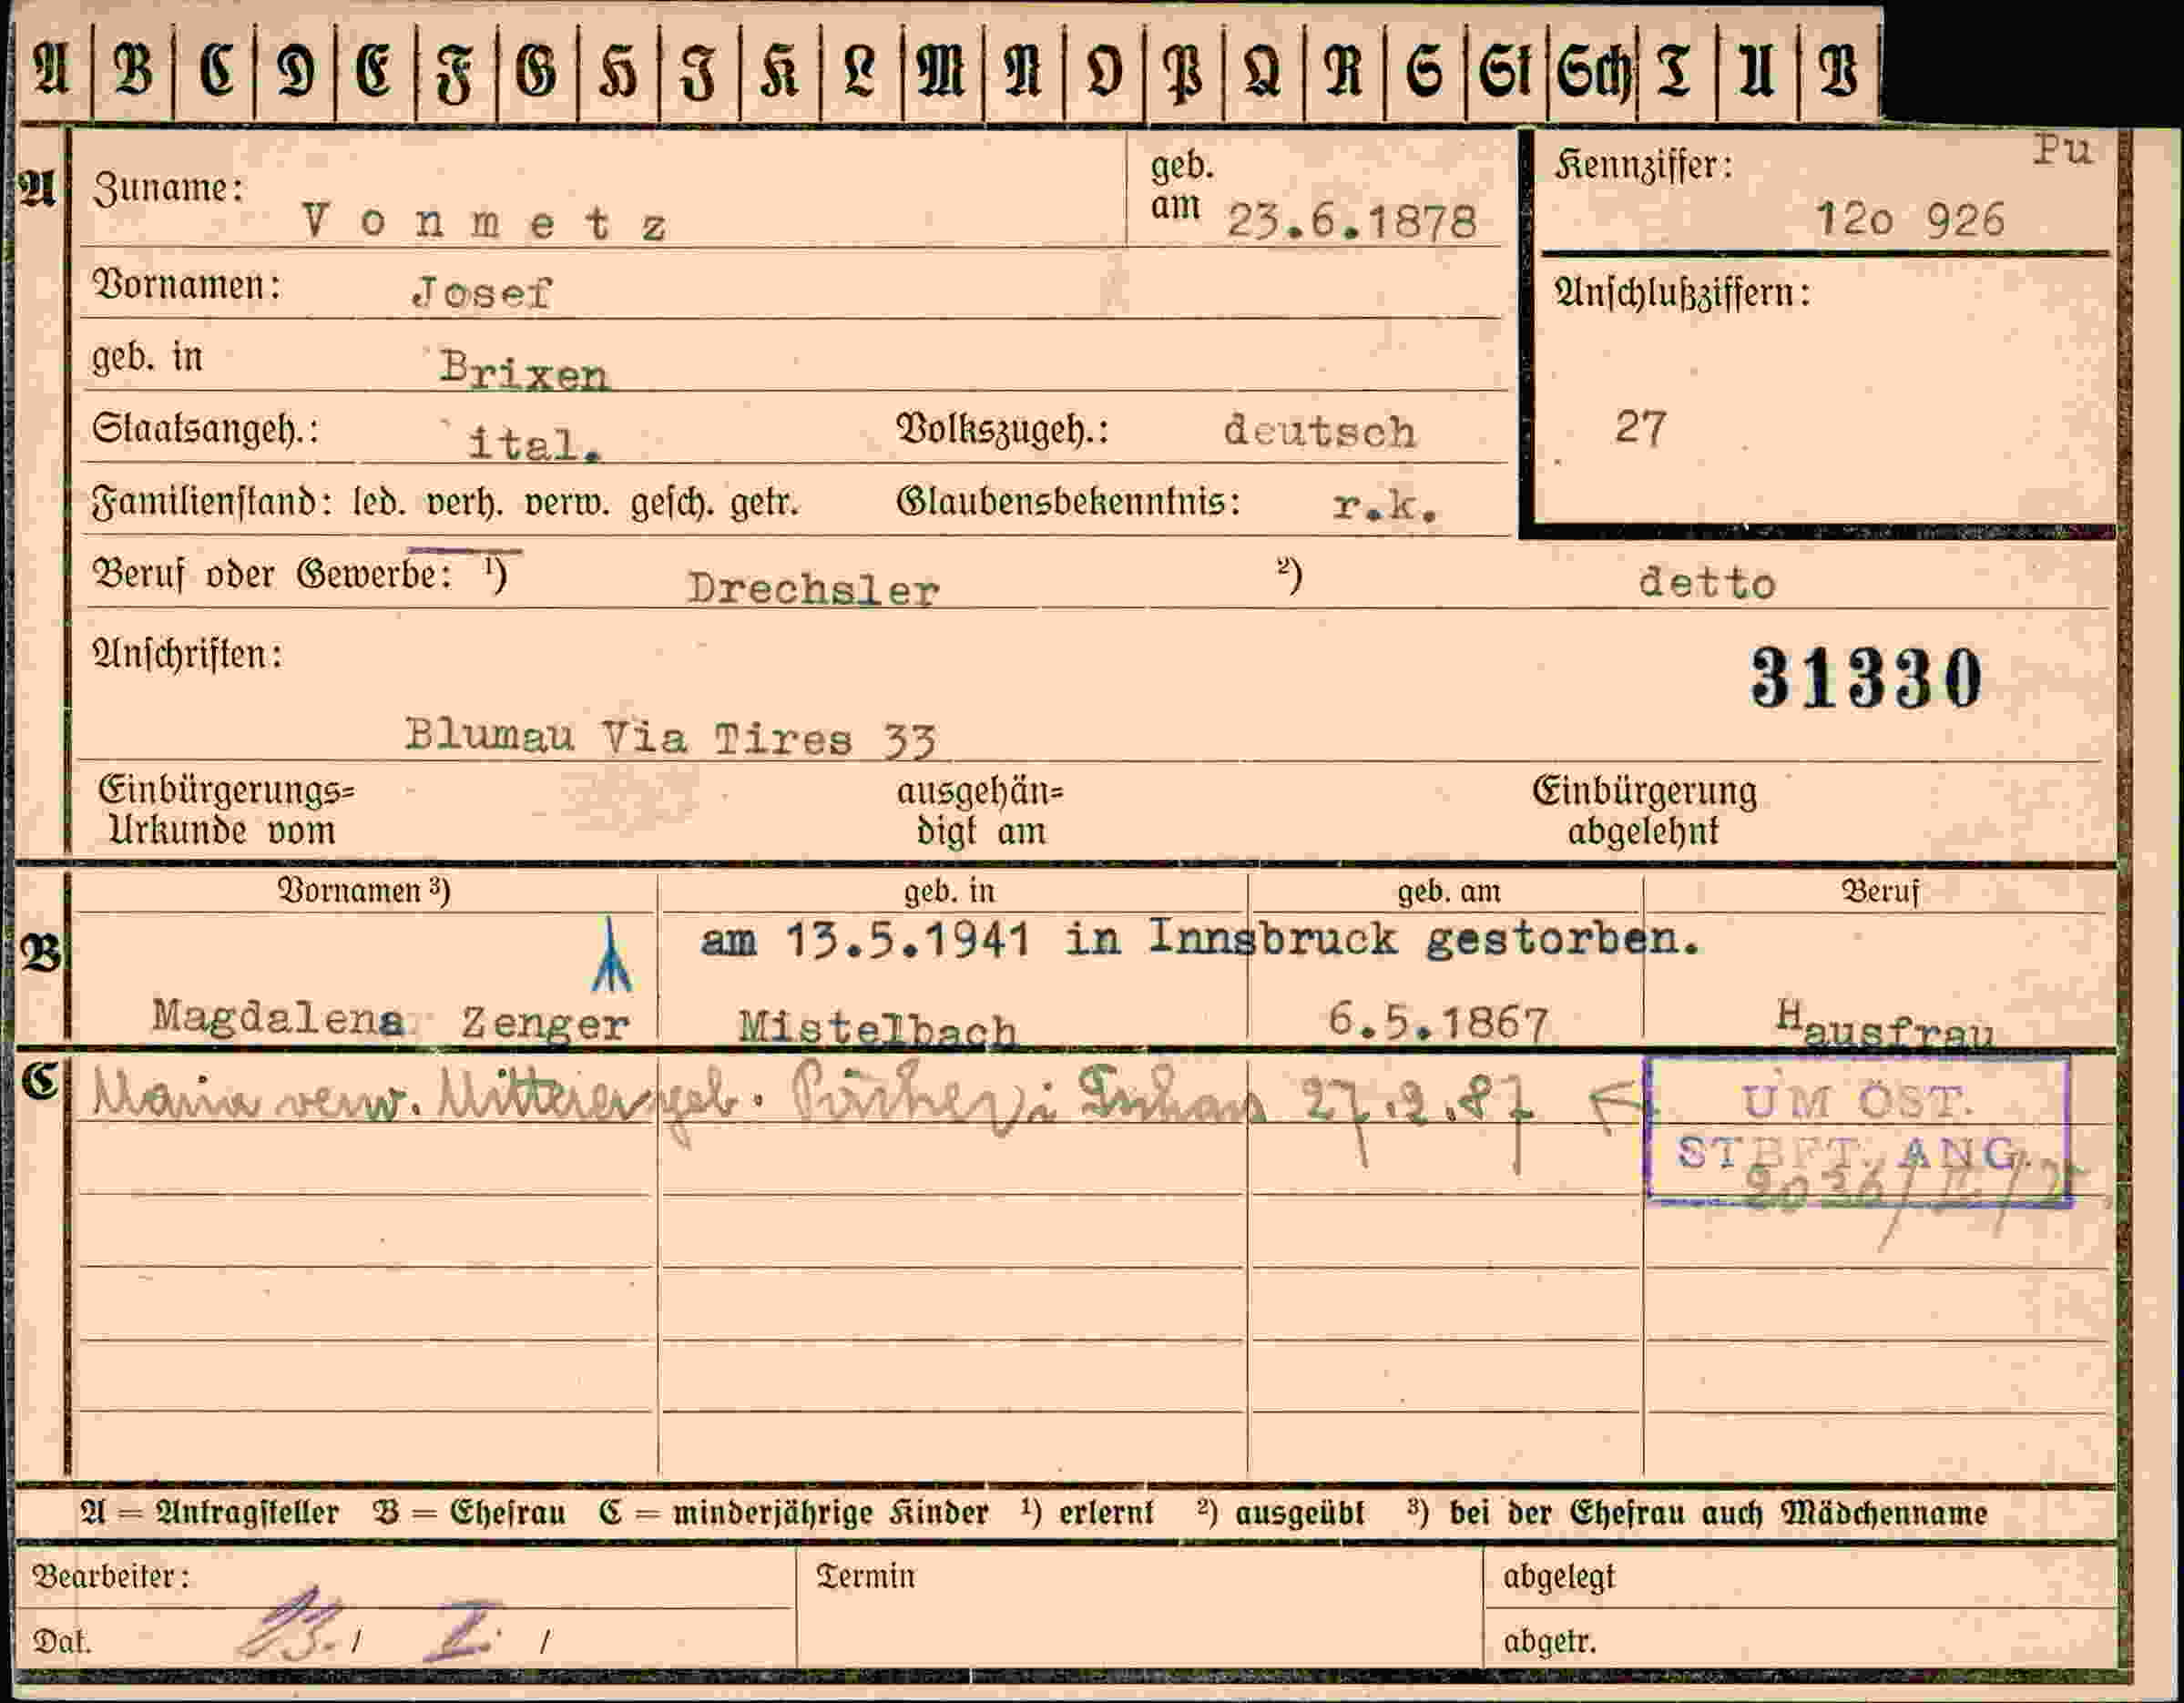 A B C D E F G H J K L M N O P Q R S St Sch T U V
Pu
A Zuname: Vonmetz geb. am 23.6.1878 Kennziffer: 12o 926
Vornamen: Josef Anschlußziffern:
geb. in Brixen
Staatsangeh.: ital. Volkszugeh.: deutsch 27
Familienstand: led. verh. verw. gesch. getr. Glaubensbekenntnis: r.k.
Beruf oder Gewerbe: ¹) Drechsler ²) detto
Anschriften: 31330
Blumau Via Tires 33
Einbürgerungs= ausgehän= Einbürgerung
Urkunde vom digt am abgelehnt
Vornamen ³) geb. in geb. am Beruf
B am 13.5.1941 in Innsbruck gestorben.
Magdalena Zenger Mistelbach 6.5.1867 Hausfrau
C Maria verw. geb. 27.2.87
UM ÖST.
STBFT. ANG.
A = Antragsteller B = Ehefrau C = minderjährige Kinder ¹) erlernt ²) ausgeübt ³) bei der Ehefrau auch Mädchenname
Bearbeiter: Termin abgelegt
Dat. 13./ I. / abgetr.